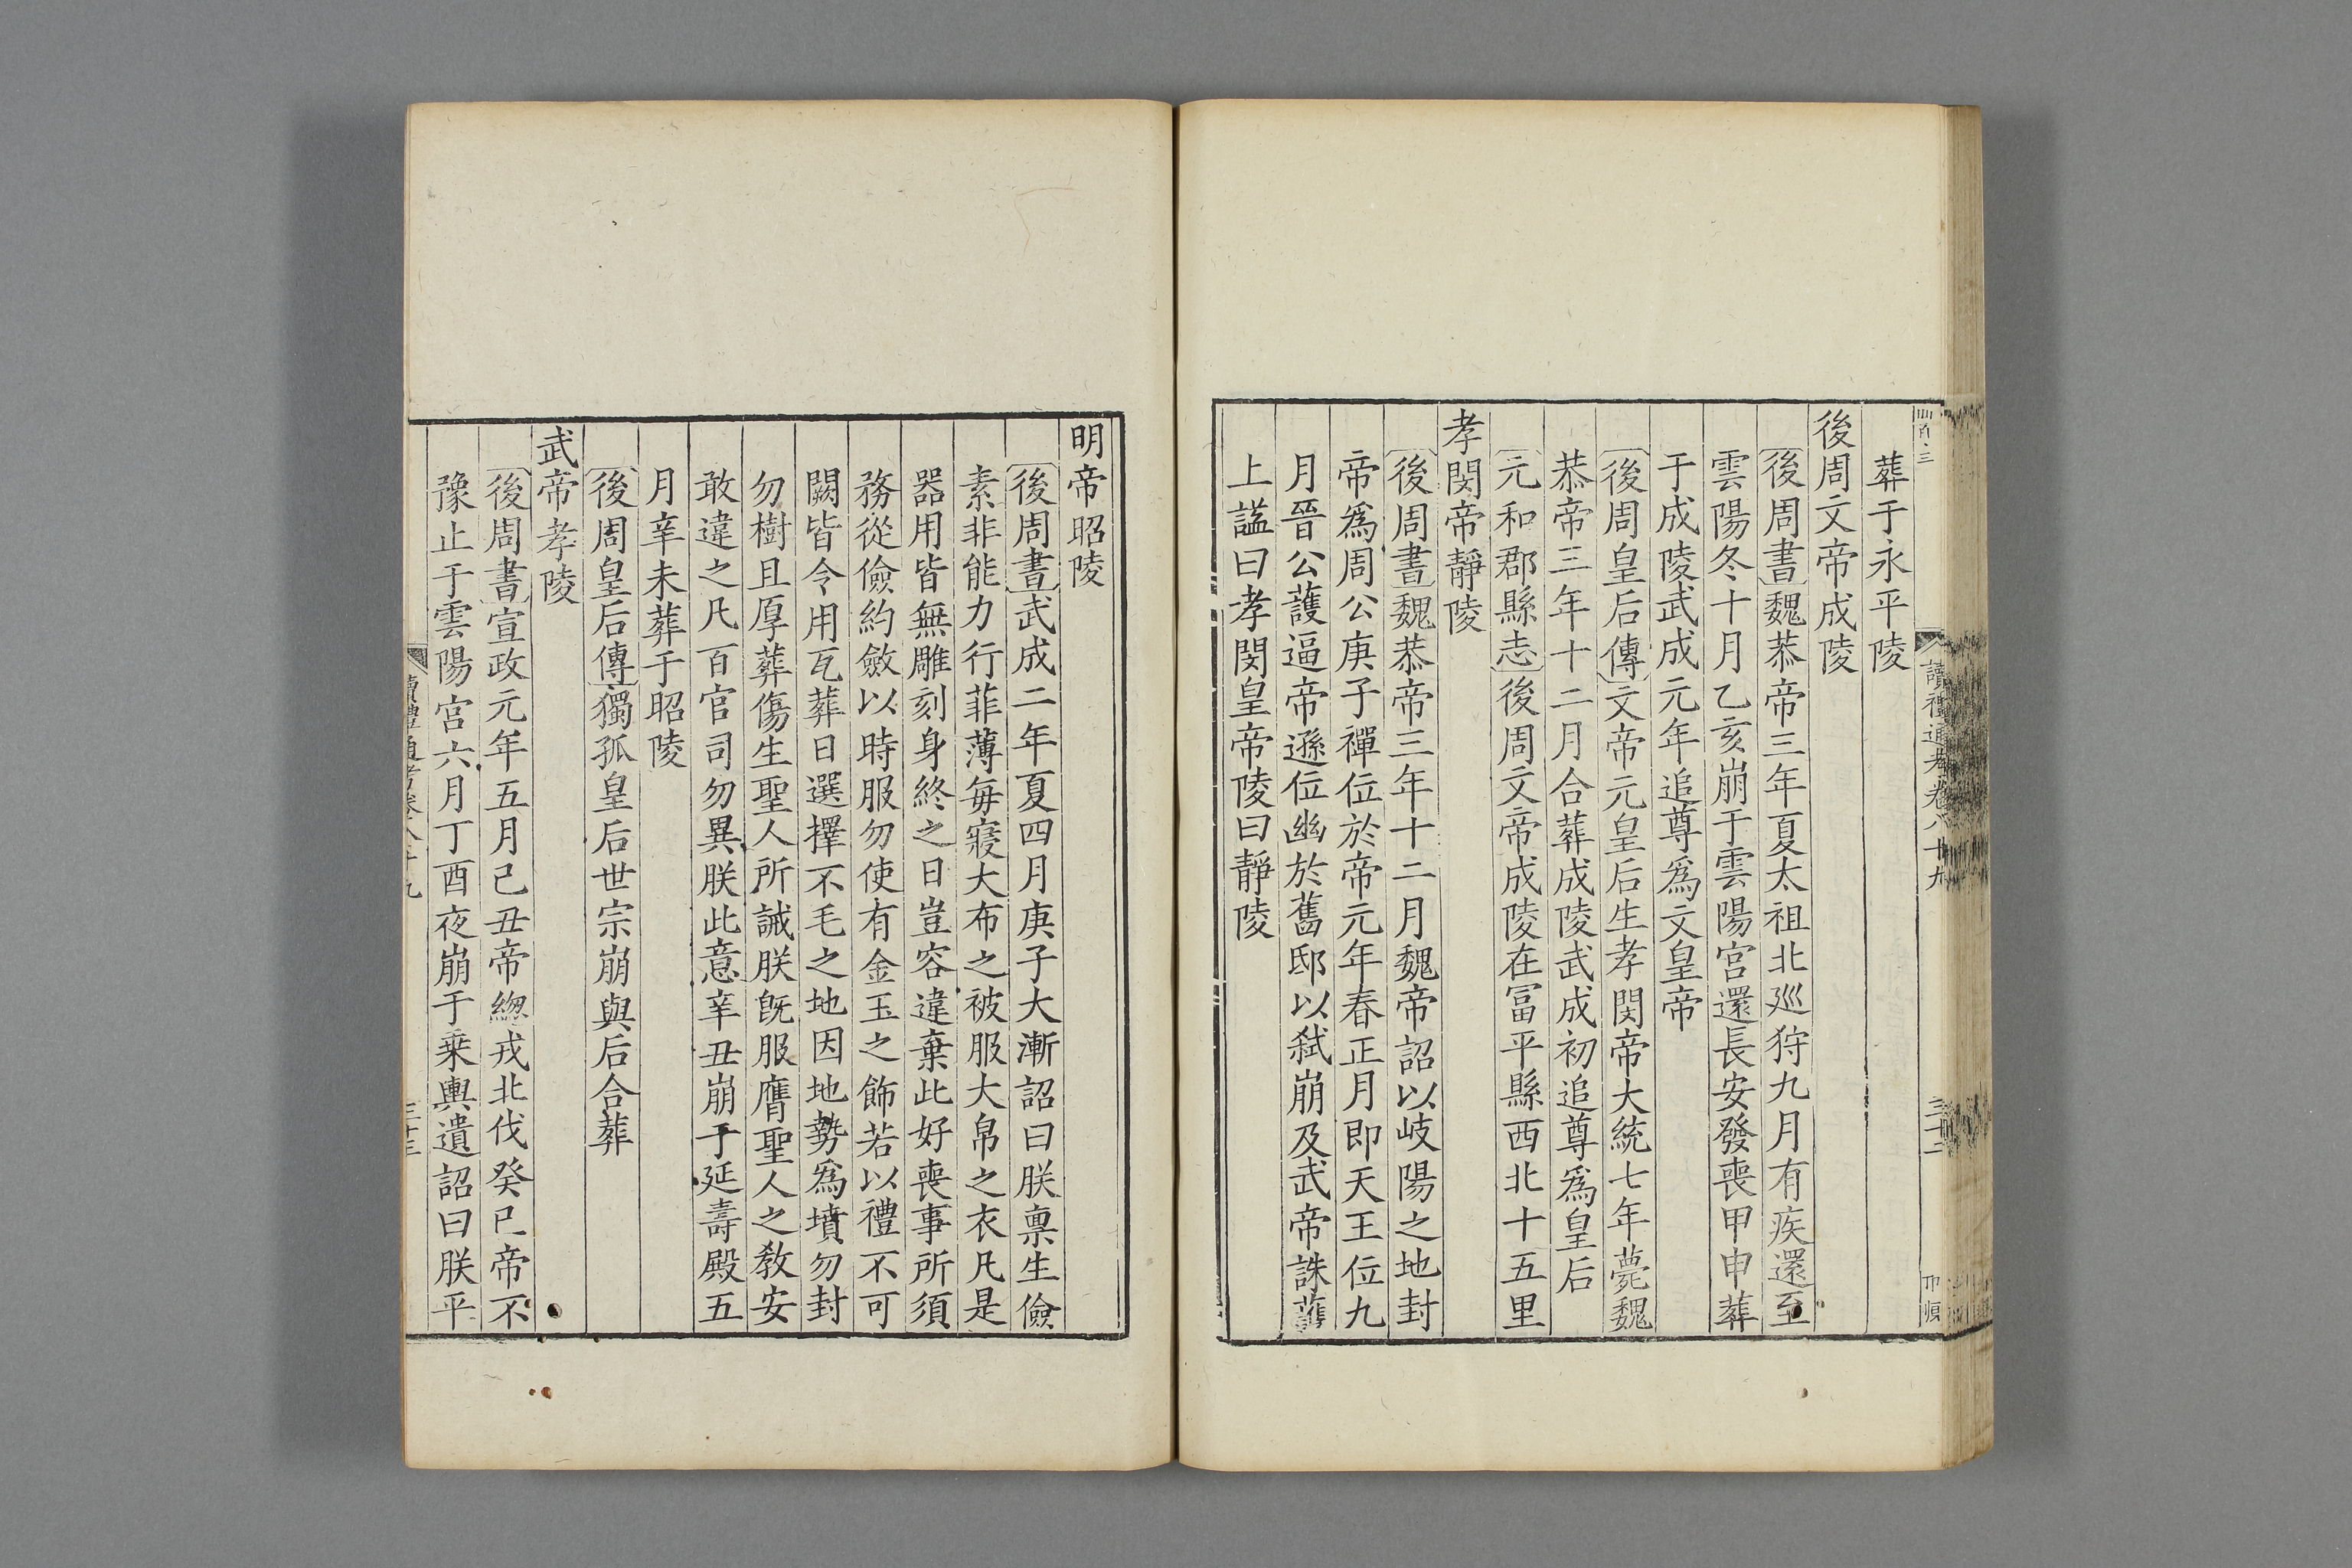 葬于永平陵
後周文帝成陵
後周書魏恭帝三年夏太祖北廵狩九月有疾還至
雲陽冬十月乙亥崩于雲陽宮還長安發喪甲申葬
于成陵武成元年追尊爲文皇帝
後周皇后傳文帝元皇后生孝閔帝大統七年薨魏
恭帝三年十二月合葬成陵武成初追尊爲皇后
元和郡縣志後周文帝成陵在冨平縣西北十五里
孝閔帝靜陵
後周書魏恭帝三年十二月魏帝詔以岐陽之地封
帝爲周公庚子禪位於帝元年春正月即天王位九
月晉公護逼帝遜位幽於舊邸以弑崩及武帝誅護
上謚曰孝閔皇帝陵曰靜陵
讀禮通考卷八十九
三十二
明帝昭陵
後周書武成二年夏四月庚子大漸詔曰朕禀生儉
素非能力行菲薄每寢大布之被服大帛之衣凡是
器用皆無雕刻身終之日豈容違棄此好喪事所須
務從儉約斂以時服勿使有金玉之飾若以禮不可
闕皆令用瓦葬日選擇不毛之地因地勢爲墳勿封
勿樹且厚葬傷生聖人所誡朕旣服膺聖人之敎安
敢違之凡百官司勿異朕此意辛丑崩于延壽殿五
月辛未葬于昭陵
後周皇后傳獨孤皇后世宗崩與后合葬
武帝孝陵
後周書宣政元年五月己丑帝緫戎北伐癸巳帝不
豫止于雲陽宮六月丁酉夜崩于乗輿遺詔曰朕平
讀禮通考卷八十九
三十三